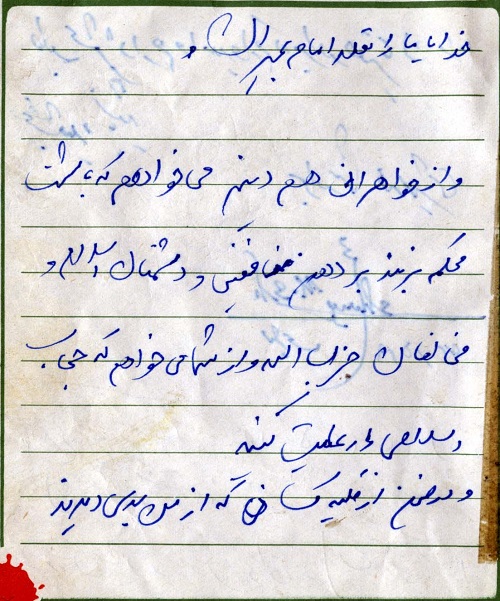 خدایا ما را تقلد امام عمیرال و
و از خواهرانی هم دینم می خواهم که با مشت
محکم بزنند بر دهن منافقین و دشمنان اسلام و
مخالفان حزب الله و از شما می خواهم که حجاب
اسلامی را رعایت کنید
و در ضمن از کلیه کسانی که از من بدی دیدید